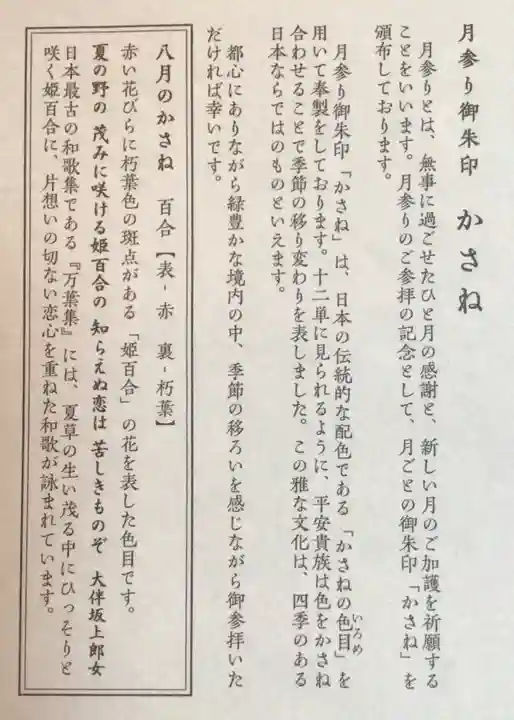 月参り御朱印　かさね
月参りとは、無事に過ごせたひと月の感謝と、新しい月のご加護を祈願する
ことをいいます。月参りのご参拝の記念として、月ごとの御朱印「かさね」を
頒布しております。
月参り御朱印「かさね」は、日本の伝統的な配色である「かさねの色目」を
いろめ
用いて奉製をしております。十二単に見られるように、平安貴族は色をかさね
合わせることで季節の移り変わりを表しました。この雅な文化は、四季のある
日本ならではのものといえます。
都心にありながら緑豊かな境内の中、季節の移ろいを感じながら御参拝いた
だければ幸いです。
八月のかさね　百合【表-赤　裏-朽葉】
赤い花びらに朽葉色の斑点がある「姫百合」の花を表した色目です。
夏の野の 茂みに咲ける姫百合の 知らえぬ恋は 苦しきものぞ　大伴坂上郎女
日本最古の和歌集である『万葉集』には、夏草の生い茂る中にひっそりと
咲く姫百合に、片想いの切ない恋心を重ねた和歌が詠まれています。